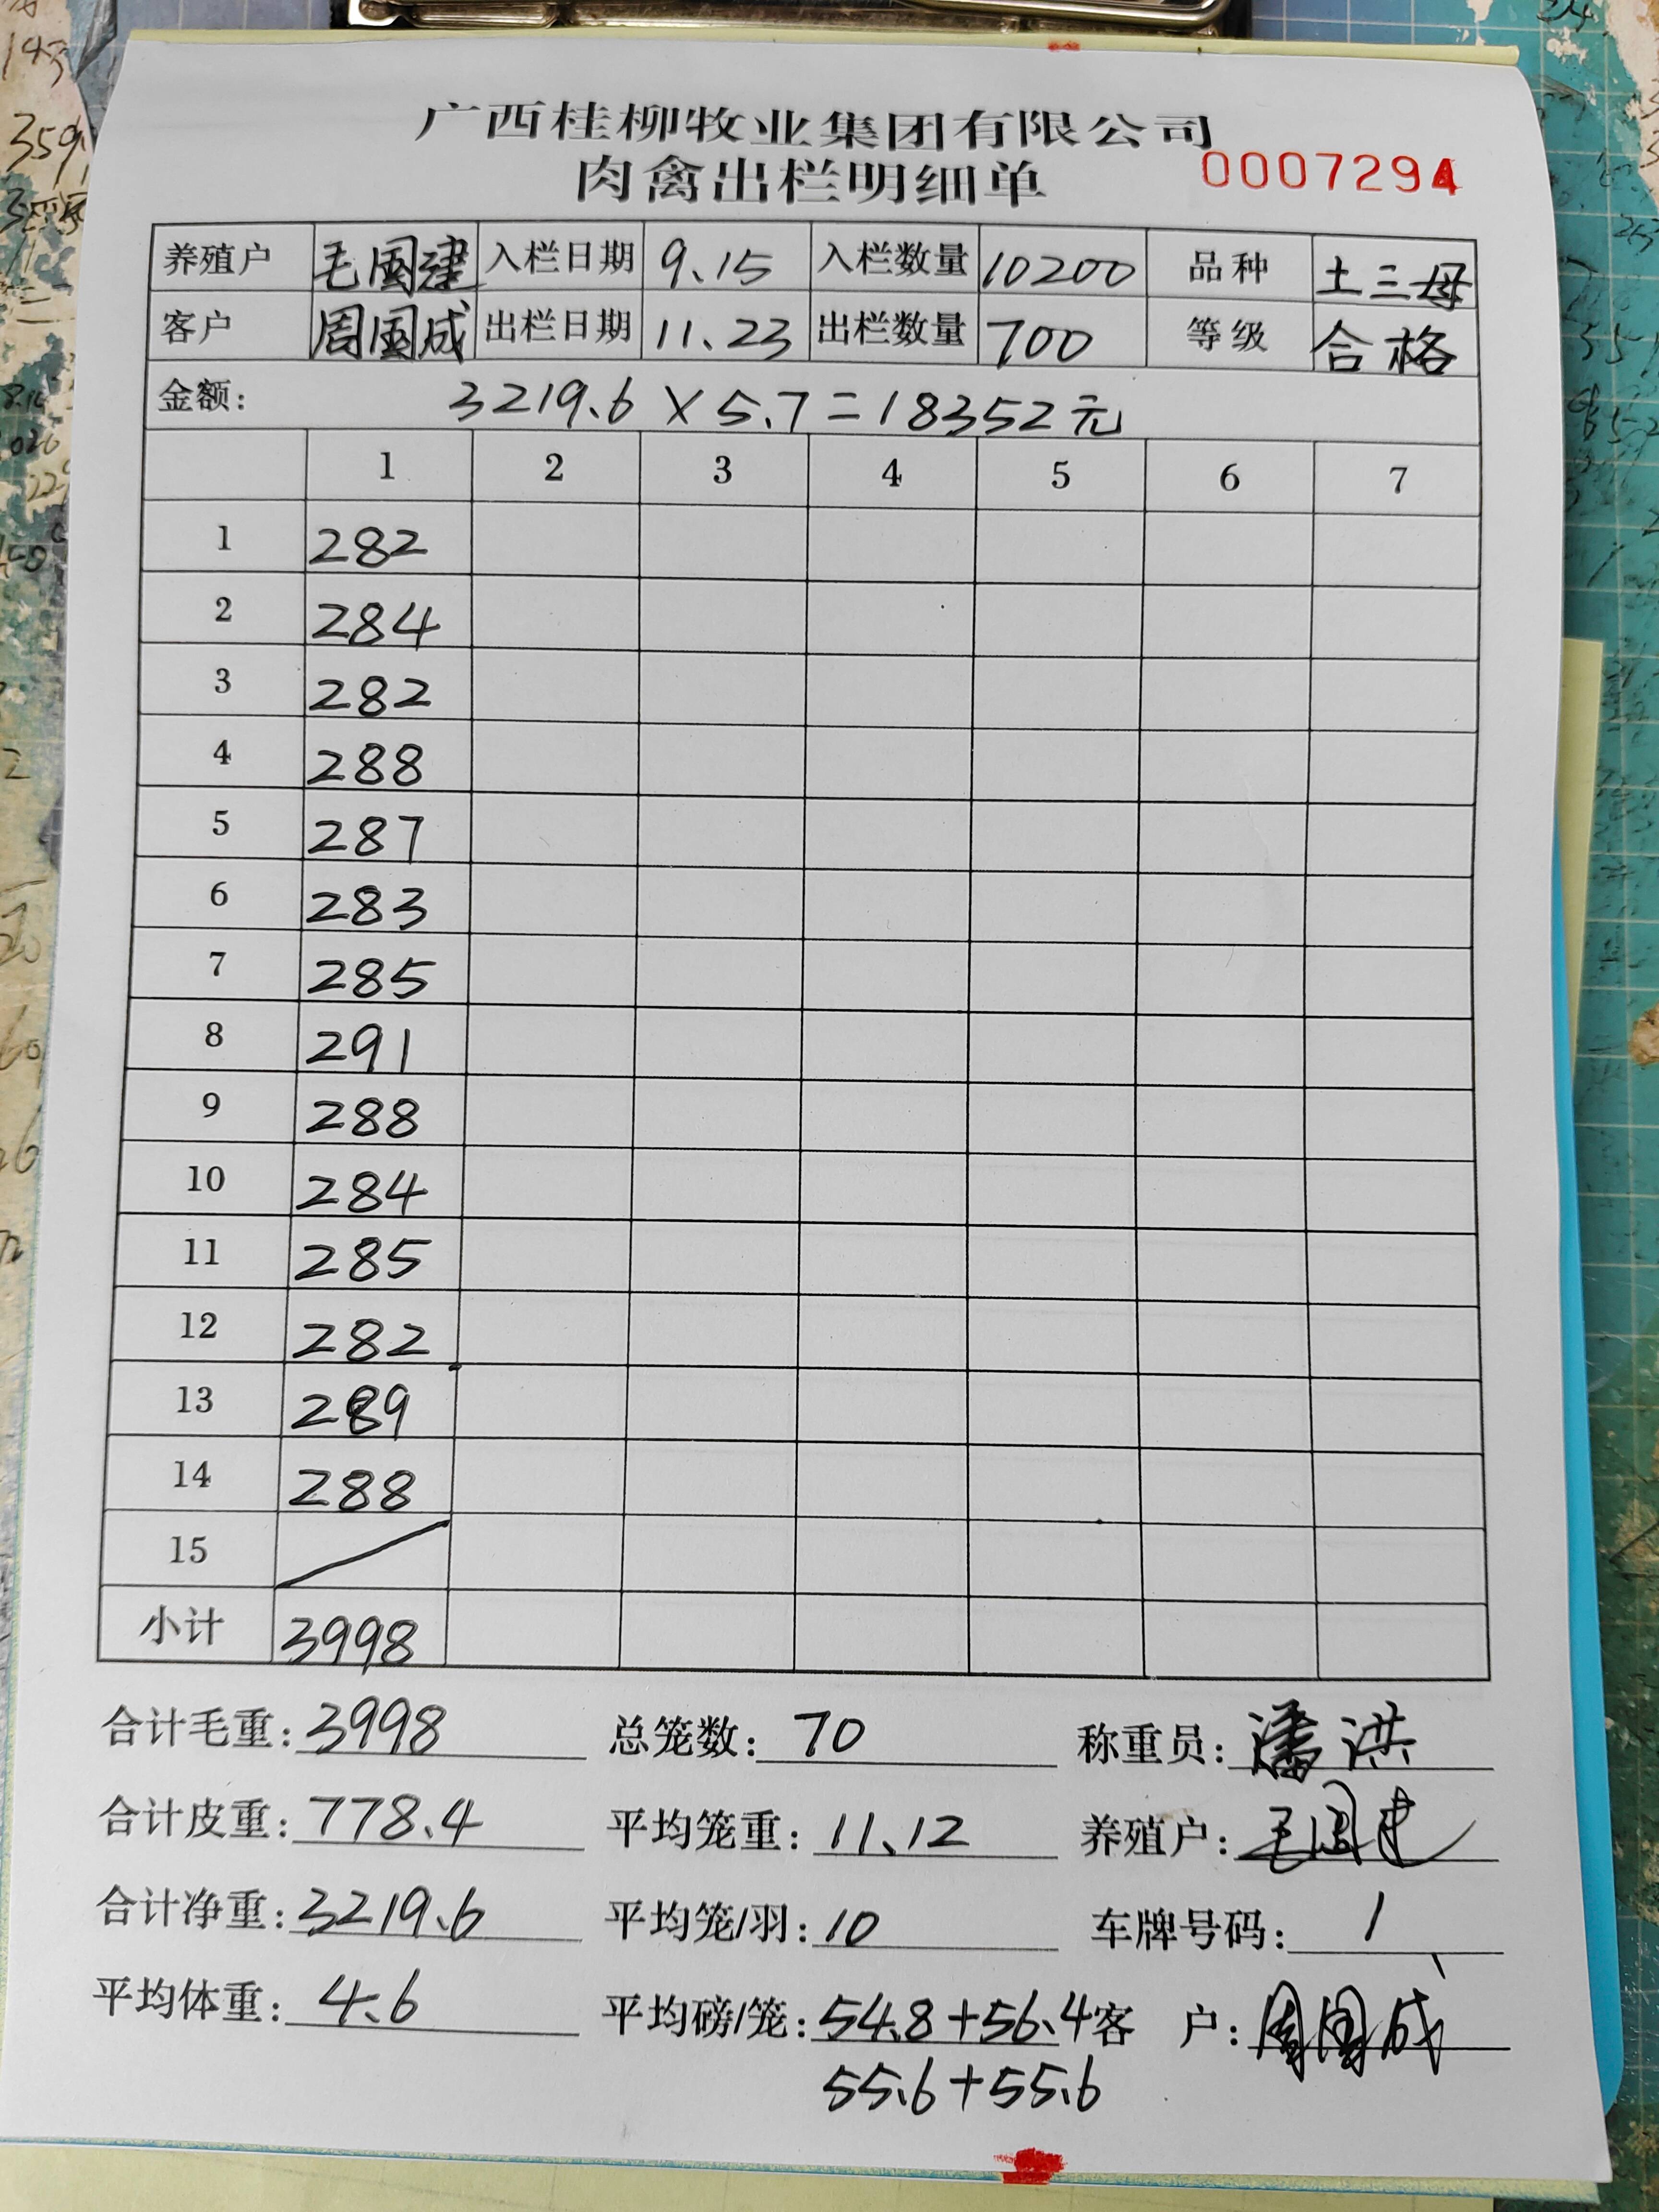 广西桂柳牧业集团有限公司
肉禽出栏明细单 0007294
养殖户 毛国建 入栏日期 9.15 入栏数量 10200 品种 土三母
客户 周国成 出栏日期 11.23 出栏数量 700 等级 合格
金额: 3219.6×5.7=18352元
1 2 3 4 5 6 7
1 282
2 284
3 282
4 288
5 287
6 283
7 285
8 291
9 288
10 284
11 285
12 282
13 289
14 288
15
小计 3998
合计毛重: 3998 总笼数: 70 称重员: 潘洪
合计皮重: 778.4 平均笼重: 11.12 养殖户: 毛国建
合计净重: 3219.6 平均笼/羽: 10 车牌号码: 1
平均体重: 4.6 平均磅/笼: 54.8+56.4 客户: 周国成
55.6+55.6